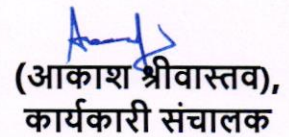 (आकाश श्रीवास्तव),
कार्यकारी संचालक